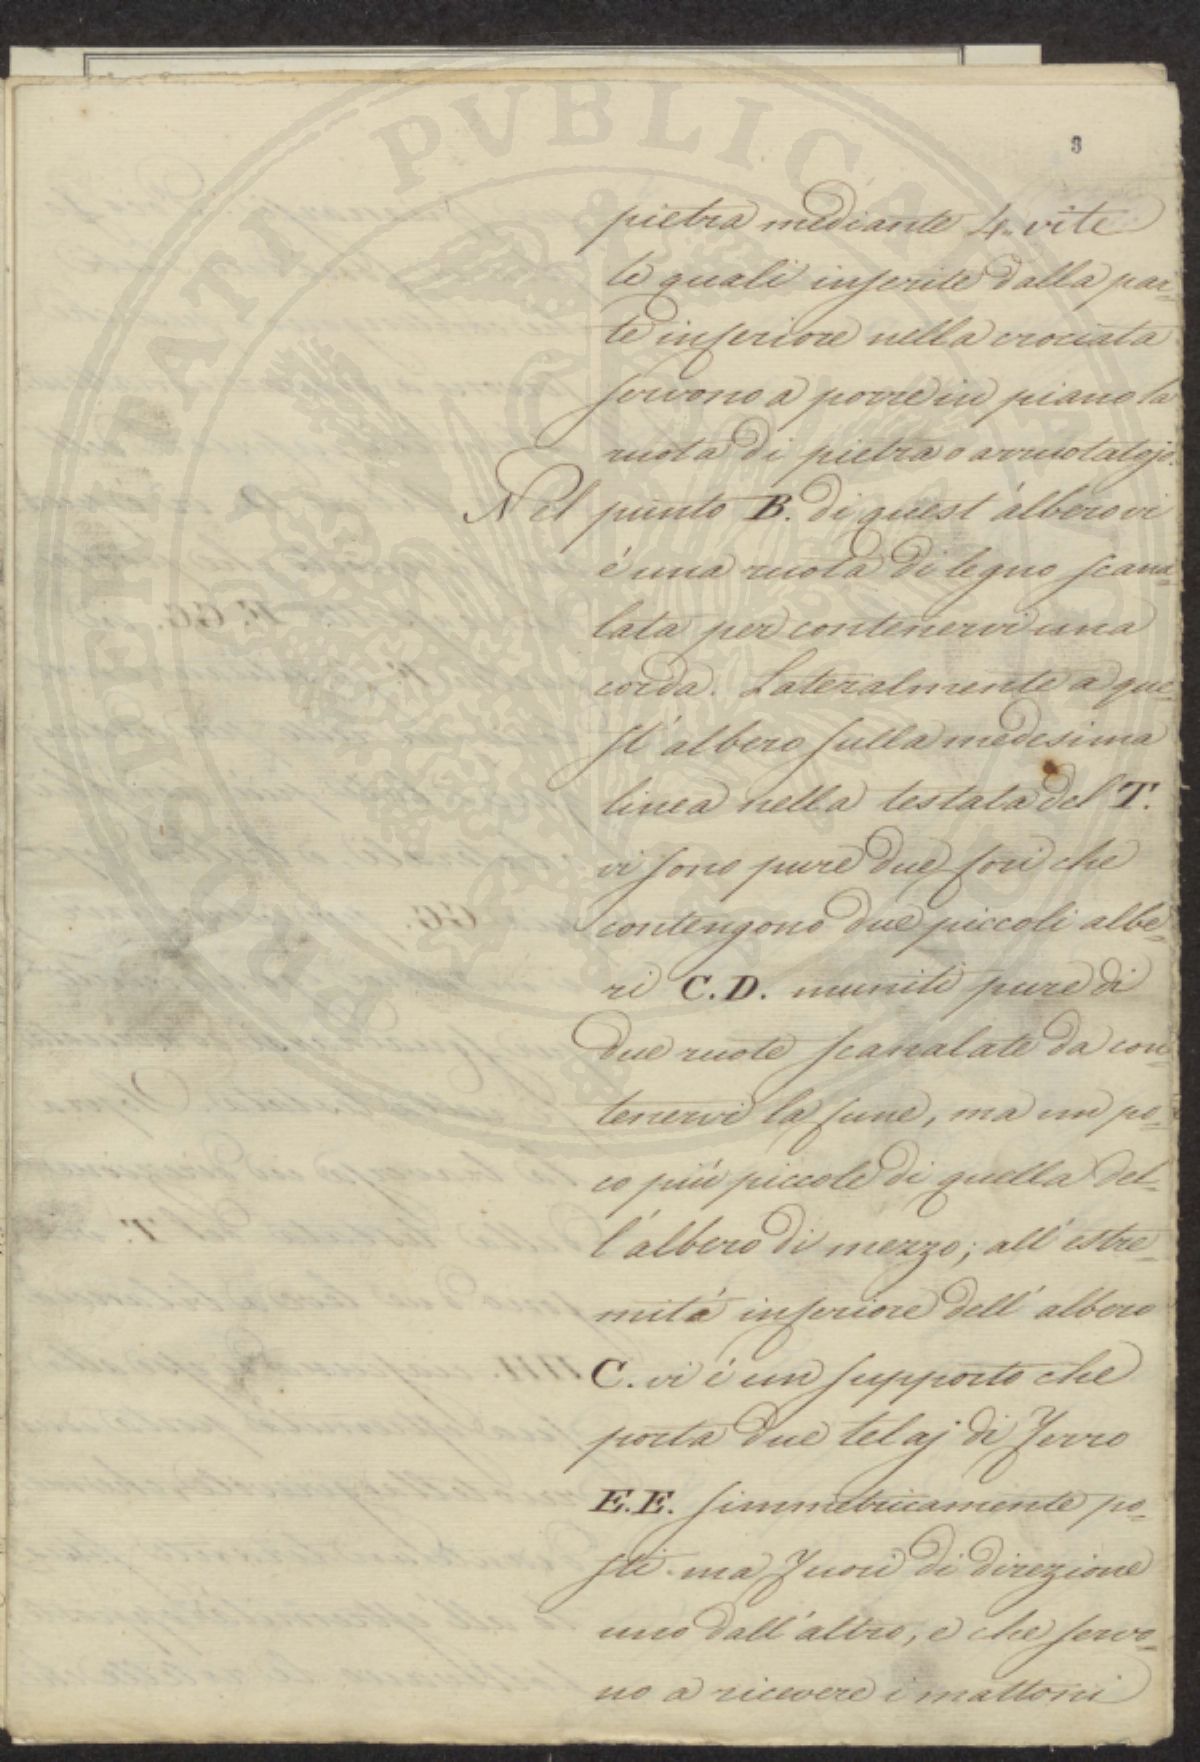 PROSPERITATI PVBLICAE AVGENDAE
3
pietra mediante 4. vite
le quali inserite dalla par-
te inferiore nella crociata
servono a porre in piano la
ruota di pietra o arruotatojo.
Nel punto B. di quest'albero vi
é una ruota di legno scana-
lata per contenervi una
corda. Lateralmente a que-
st'albero sulla medesima
linea nella testata del T.
vi sono pure due fori che
contengono due piccoli albe-
ri C. D. muniti pure di
due ruote scanalate da con-
tenervi la fune, ma un po-
co piú piccole di quella del-
l'albero di mezzo; all'estre-
mitá inferiore dell'albero
C. vi é un supporto che
porta due telaj di Ferro
E.E. simmetricamente po-
sti ma Fuori di direzione
uno dall'altro, e che servo-
no a ricevere i mattoni